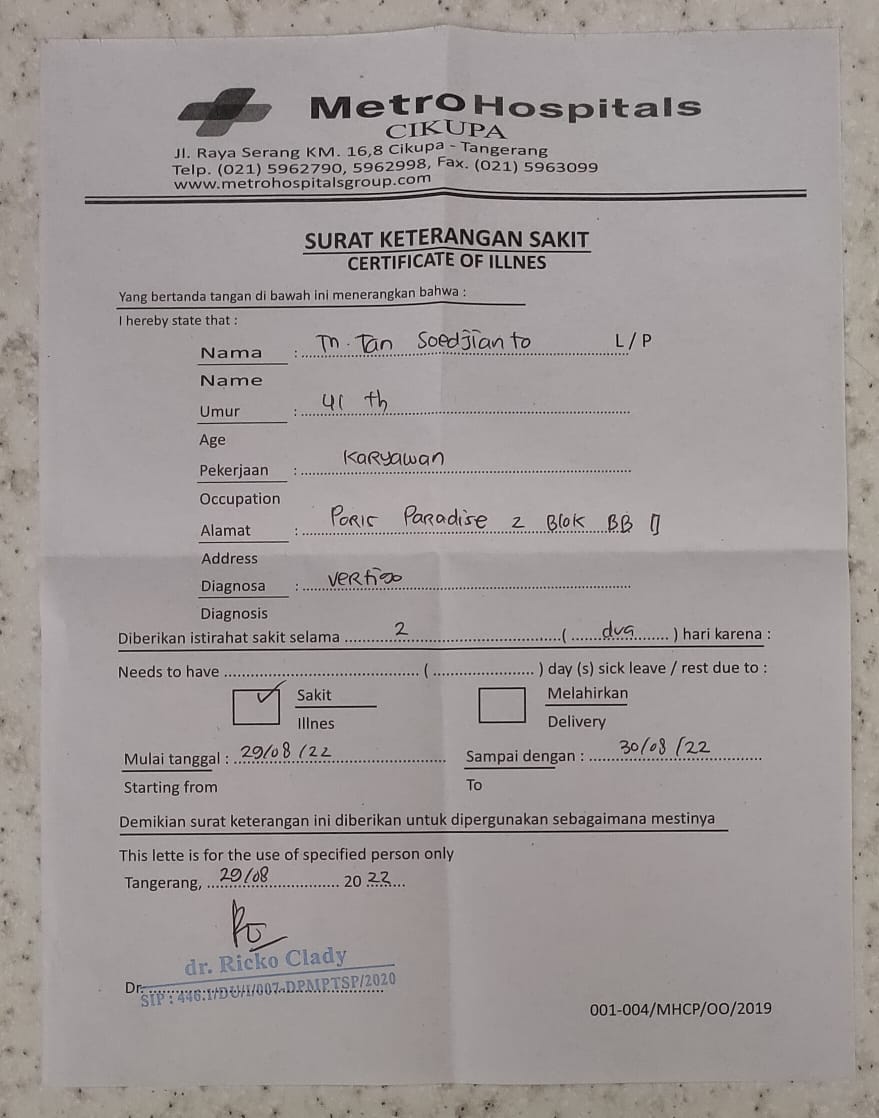 MetroHospitals
CIKUPA
Jl. Raya Serang KM. 16,8 Cikupa - Tangerang
Telp. (021) 5962790, 5962998, Fax. (021) 5963099
www.metrohospitalsgroup.com
SURAT KETERANGAN SAKIT
CERTIFICATE OF ILLNES
Yang bertanda tangan di bawah ini menerangkan bahwa :
I hereby state that :
Nama : Tn. Tan Soedjianto L / P
Name
Umur : 41 th
Age
Pekerjaan : Karyawan
Occupation
Alamat : Poris Paradise 2 Blok BB
Address
Diagnosa : Vertigo
Diagnosis
Diberikan istirahat sakit selama 2 ( dua ) hari karena :
Needs to have ( ) day (s) sick leave / rest due to :
Sakit Melahirkan
Illnes Delivery
Mulai tanggal : 29/08/22 Sampai dengan : 30/08/22
Starting from To
Demikian surat keterangan ini diberikan untuk dipergunakan sebagaimana mestinya
This lette is for the use of specified person only
Tangerang, 29/08 20 22
dr. Ricko Clady
Dr.
SIP : 446.1/DU/I/007-DPMPTSP/2020
001-004/MHCP/OO/2019